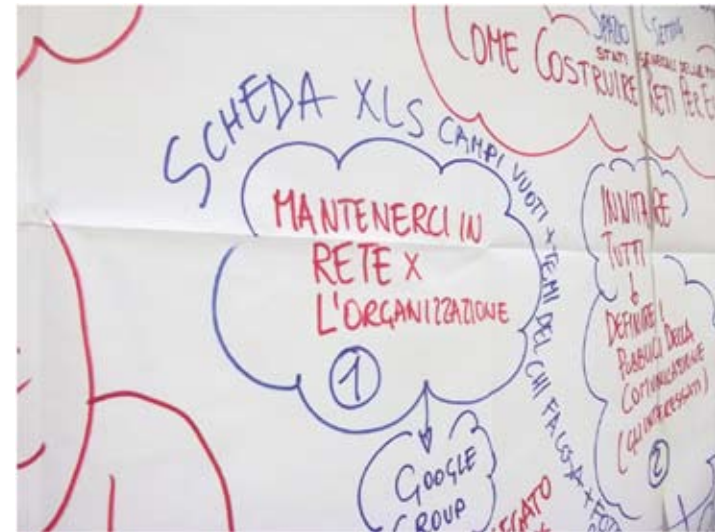 SPAZIO SETTING
STATI
COME COSTRUIRE RETI PER
SCHEDA XLS CAMPI VUOTI + TEMI DEL CHI FA COSA + FOTO
MANTENERCI IN
RETE X
L'ORGANIZZAZIONE
1
GOOGLE
GROUP
INVITARE
TUTTI
DEFINIRE I
PUBBLICI DELLA
COMUNICAZIONE
(GLI INTERESSATI)
2